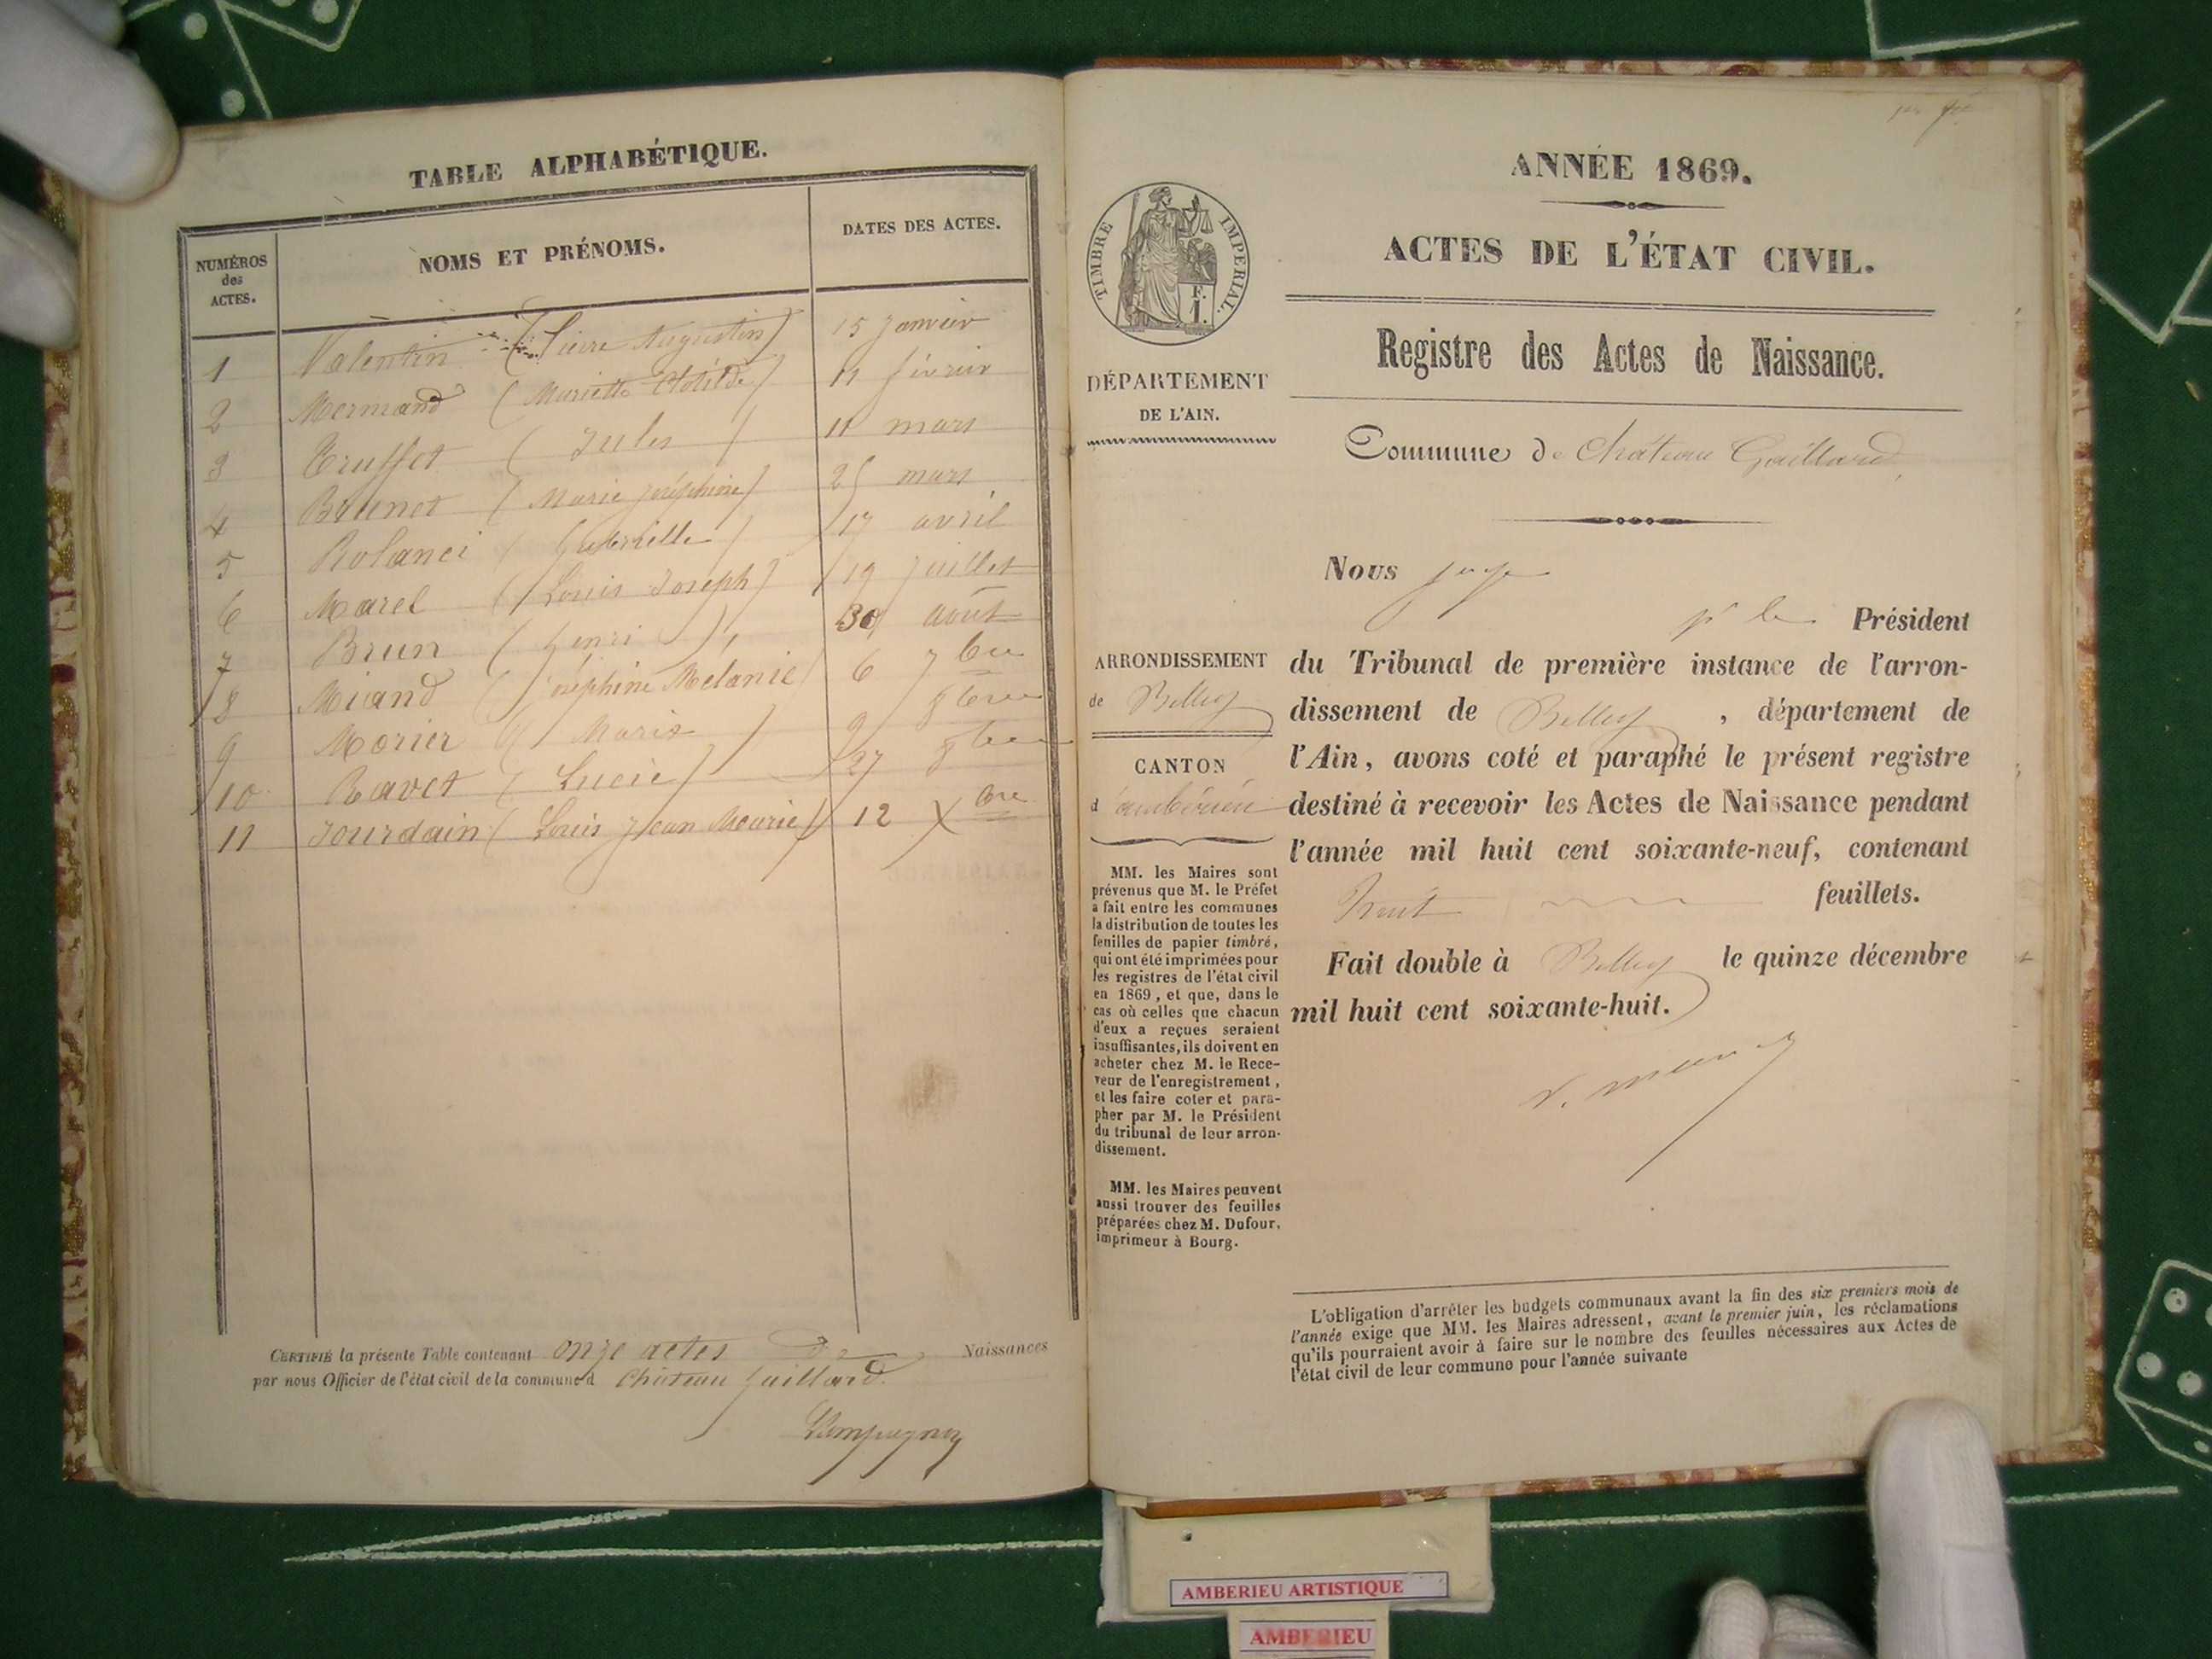 TABLE ALPHABÉTIQUE.
NUMÉROS
des
ACTES.
NOMS ET PRÉNOMS.
DATES DES ACTES.
1 Valentin (Pierre Augustin) 15 janvier
2 Mermand (Mariette Clotilde) 11 février
3 Truffet (Jules) 11 mars
4 Brunet (Marie Joséphine) 25 mars
5 Rolanci (Gabrielle) 17 avril
6 Marel (Louis Joseph) 19 juillet
7 Brun (henri) 30 août
8 Miand (Joséphine Melanie) 6 7bre
9 Morier (Marie) 9 8bre
10 Ravet (Lucie) 27 8bre
11 Jourdain (Louis Jean Marie) 12 Xbre
CERTIFIÉ la présente Table contenant onze actes de Naissances
par nous Officier de l'état civil de la commune d Château gaillard.
ANNÉE 1869.
ACTES DE L'ÉTAT CIVIL.
TIMBRE IMPÉRIAL.
F.
1.
Registre des Actes de Naissance.
DÉPARTEMENT
DE L'AIN.
Commune de Château Gaillard
Nous juge
pr le Président
ARRONDISSEMENT
de Belley
CANTON
d'ambérieu
du Tribunal de première instance de l'arron-
dissement de Belley, département de
l'Ain, avons coté et paraphé le présent registre
destiné à recevoir les Actes de Naissance pendant
l'année mil huit cent soixante-neuf, contenant
huit feuillets.
Fait double à Belley le quinze décembre
mil huit cent soixante-huit.
MM. les Maires sont
prévenus que M. le Préfet
a fait entre les communes
la distribution de toutes les
feuilles de papier timbré,
qui ont été imprimées pour
les registres de l'état civil
en 1869, et que, dans le
cas où celles que chacun
d'eux a reçues seraient
insuffisantes, ils doivent en
acheter chez M. le Rece-
veur de l'enregistrement,
et les faire coter et para-
pher par M. le Président
du tribunal de leur arron-
dissement.
MM. les Maires peuvent
aussi trouver des feuilles
préparées chez M. Dufour,
imprimeur à Bourg.
L'obligation d'arrêter les budgets communaux avant la fin des six premiers mois de
l'année exige que MM. les Maires adressent, avant le premier juin, les réclamations
qu'ils pourraient avoir à faire sur le nombre des feuilles nécessaires aux Actes de
l'état civil de leur commune pour l'année suivante
AMBERIEU ARTISTIQUE
AMBERIEU